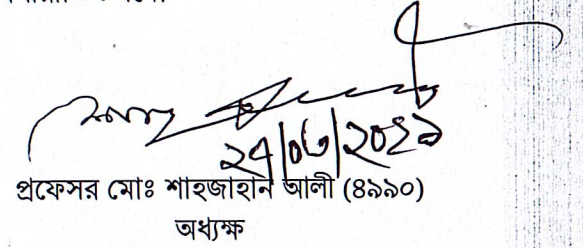 ২৭/০৬/২০২১
প্রফেসর মোঃ শাহজাহান আলী (৪৯৯০)
অধ্যক্ষ